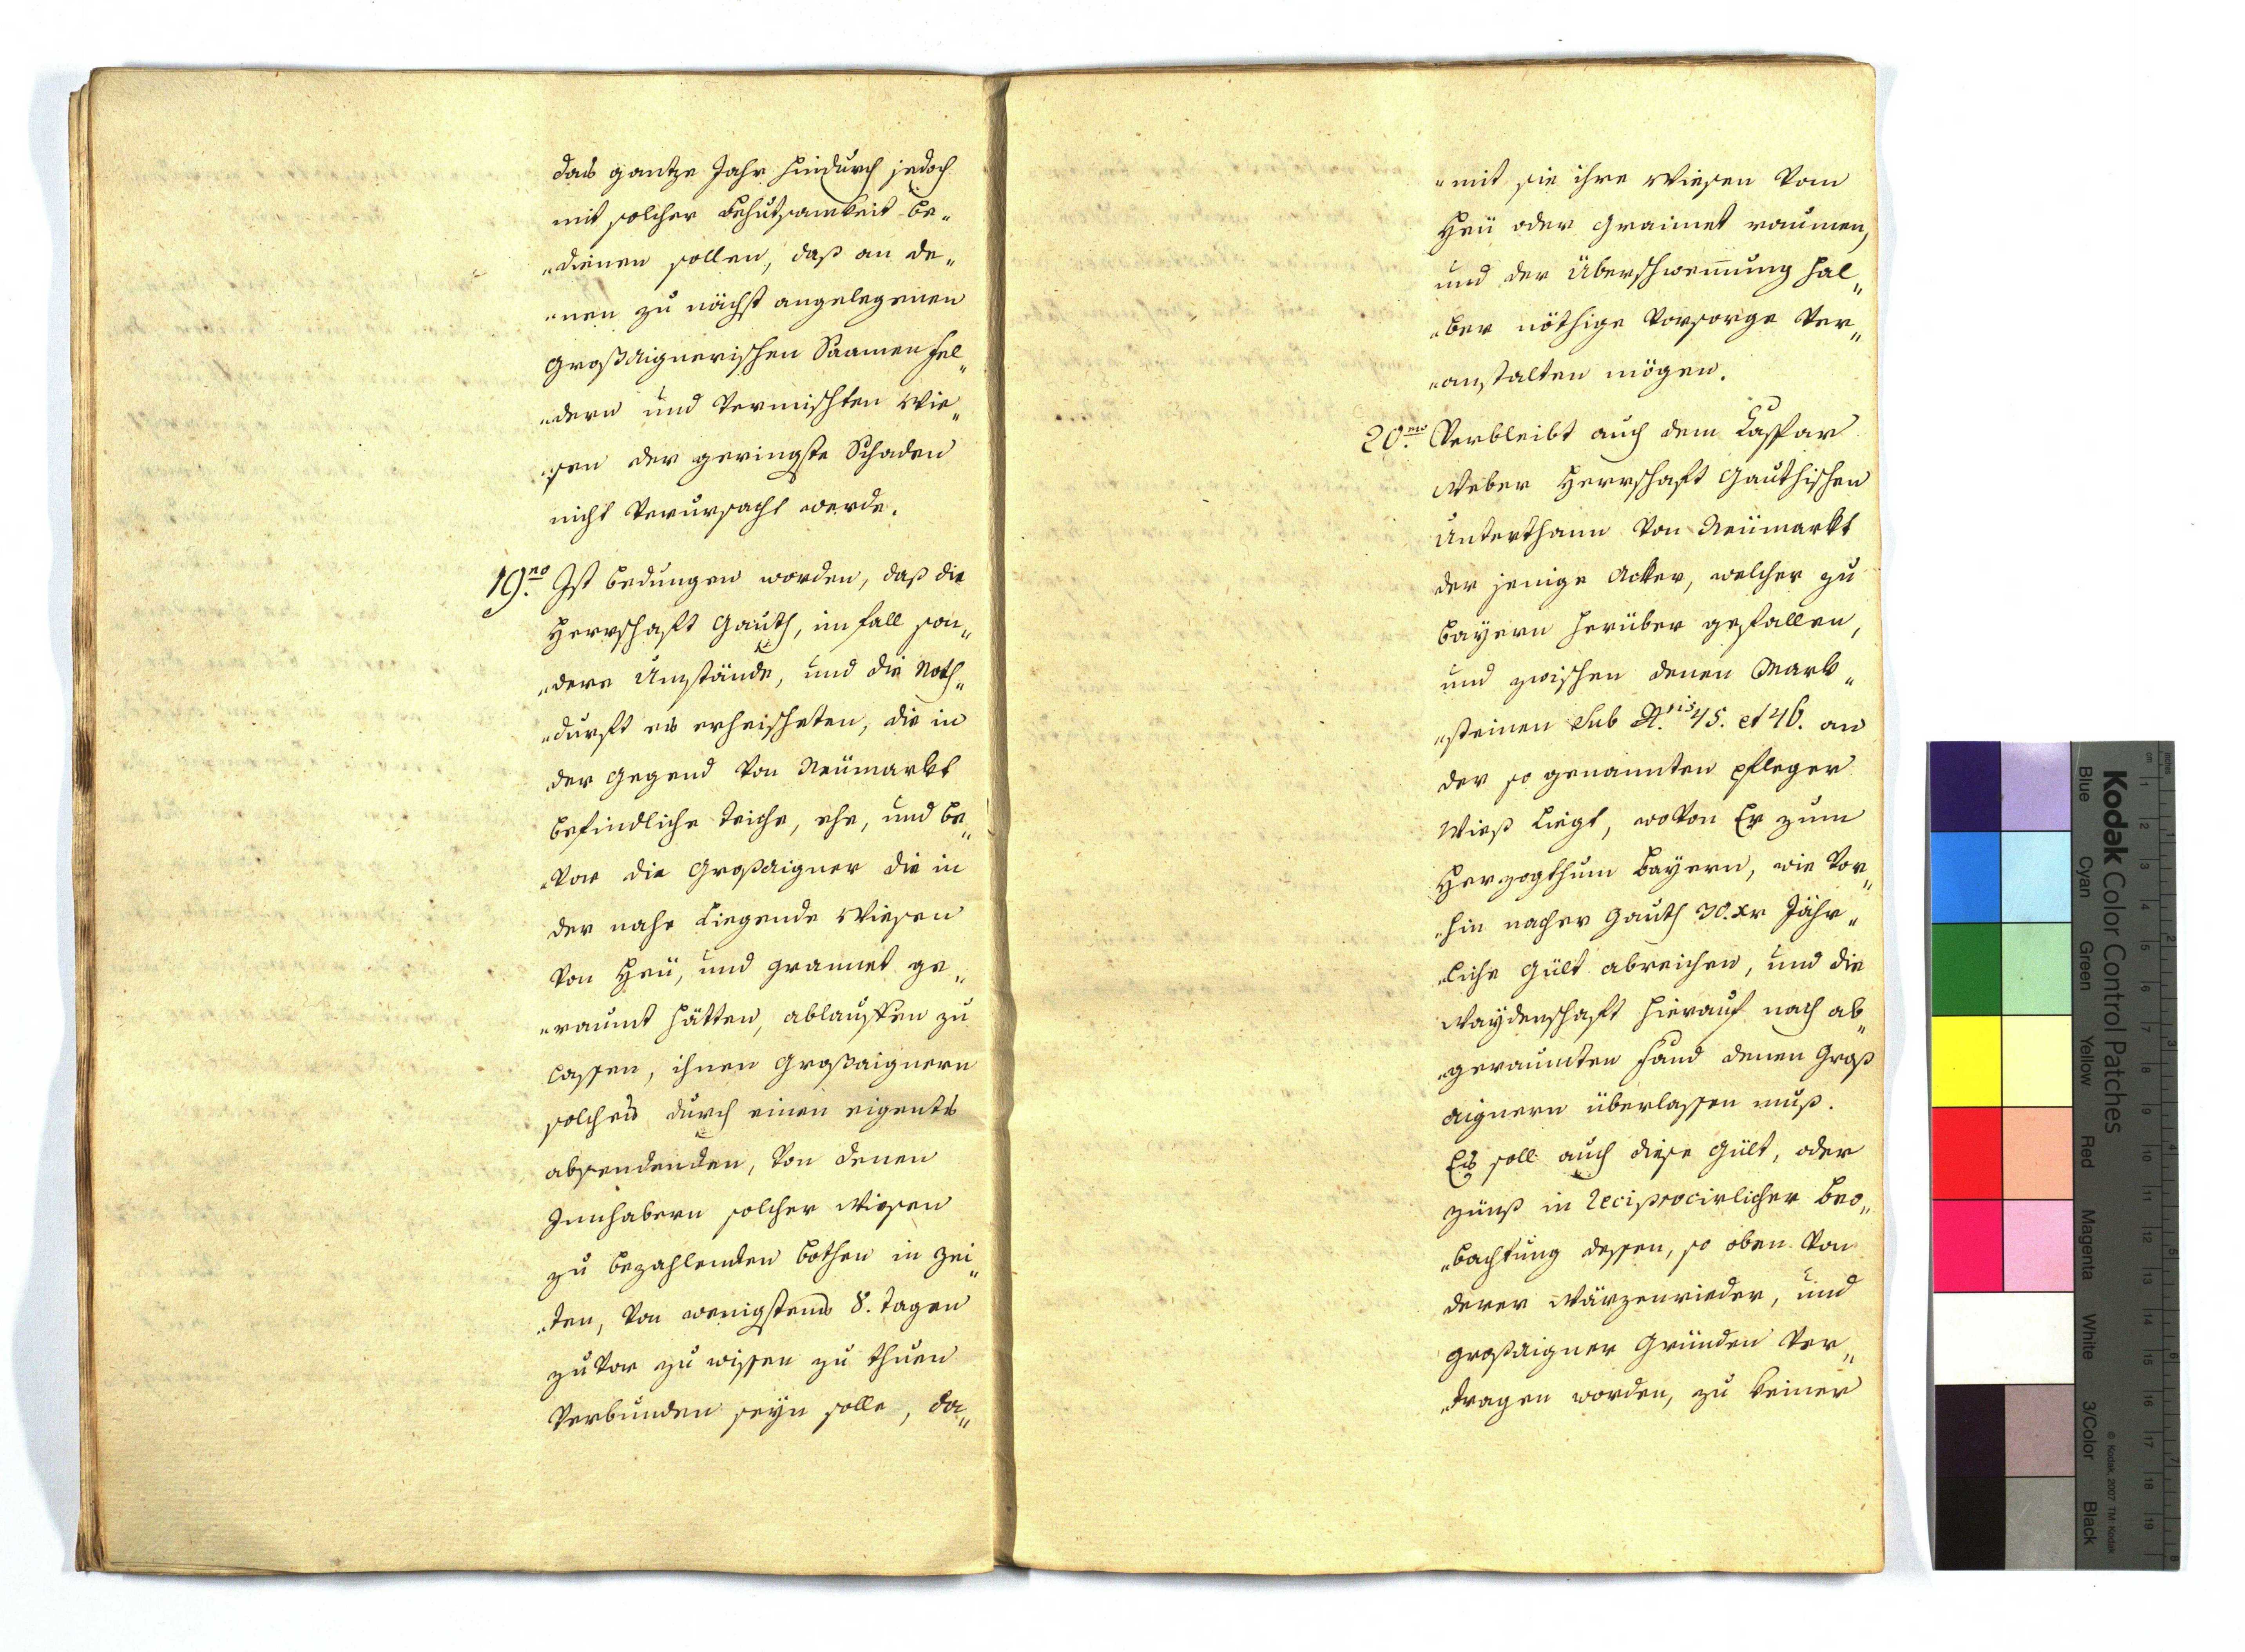 das gantze Jahr hindurch jedoch
mit solcher Behutsamkeit be„
„dienen sollen, daß an de„
„nen zu nächst angelegenen
Großaignerischen Saamen fel„
„dern und vermischten Wie„
„sen der geringste Schaden
nicht verursacht werde.
19.no Ist bedungen worden, daß die
Herrschaft Gauth, im fall son„
„dere Umstände, und die Noth„
„durft es erheischeten, die in
der Gegend von Neümarkt
befindliche Teiche, ehe, und be„
„vor die Großaigner die in
der nahe Liegende Wiesen
von Heü, und Grannet ge„
„raumt hätten, ablauffen zu
lassen, ihnen Großaignern
solches durch einen eigents
absendenden, von denen
Innhabern solcher Wiesen
zu bezahlenden Bothen in Zei„
„ten, von wenigstens 8. Tagen
zuvor zu wissen zu thuen
verbunden seyn solle, da„
„mit sie ihre Wiesen vom
Heü oder Graimet raumen,
und der Überschwem̅ung hal„
„ber nöthige Vorsorge ver„
„anstalten mögen.
20.mo Verbleibt auch dem Caspar
Weber Herrschaft Gauthischen
Unterthann von Neümarkt
der jenige Acker, welcher zu
Bayern herüber gefallen,
und zwischen denen Mark„
„steinen Sub N.ris 45. et 46. an
der so genannten Pfleger
Wieß Liegt, wovon Er zum
Herzogthum Bayern, wie vor„
„hin nacher Gauth 30. xr Jähr„
„liche Gült abreichen, und die
Waydenschaft hierauf nach ab„
„geraumten fand denen Groß
aignern überlassen muß.
Es soll auch diese Gült, oder
Zünß in Reciprocirlicher Beo„
„bachtung dessen, so oben von
derer Wärzenrieder, und
Großaigner Gründen ver„
„tragen worden, zu keiner
Kodak Color Control Patches
Blue Cyan Green Yellow Red Magenta White 3/Color Black
© Kodak, 2007 TM: Kodak
inches 1 2 3 4 5 6 7 8
cm 1 2 3 4 5 6 7 8 9 10 11 12 13 14 15 16 17 18 19